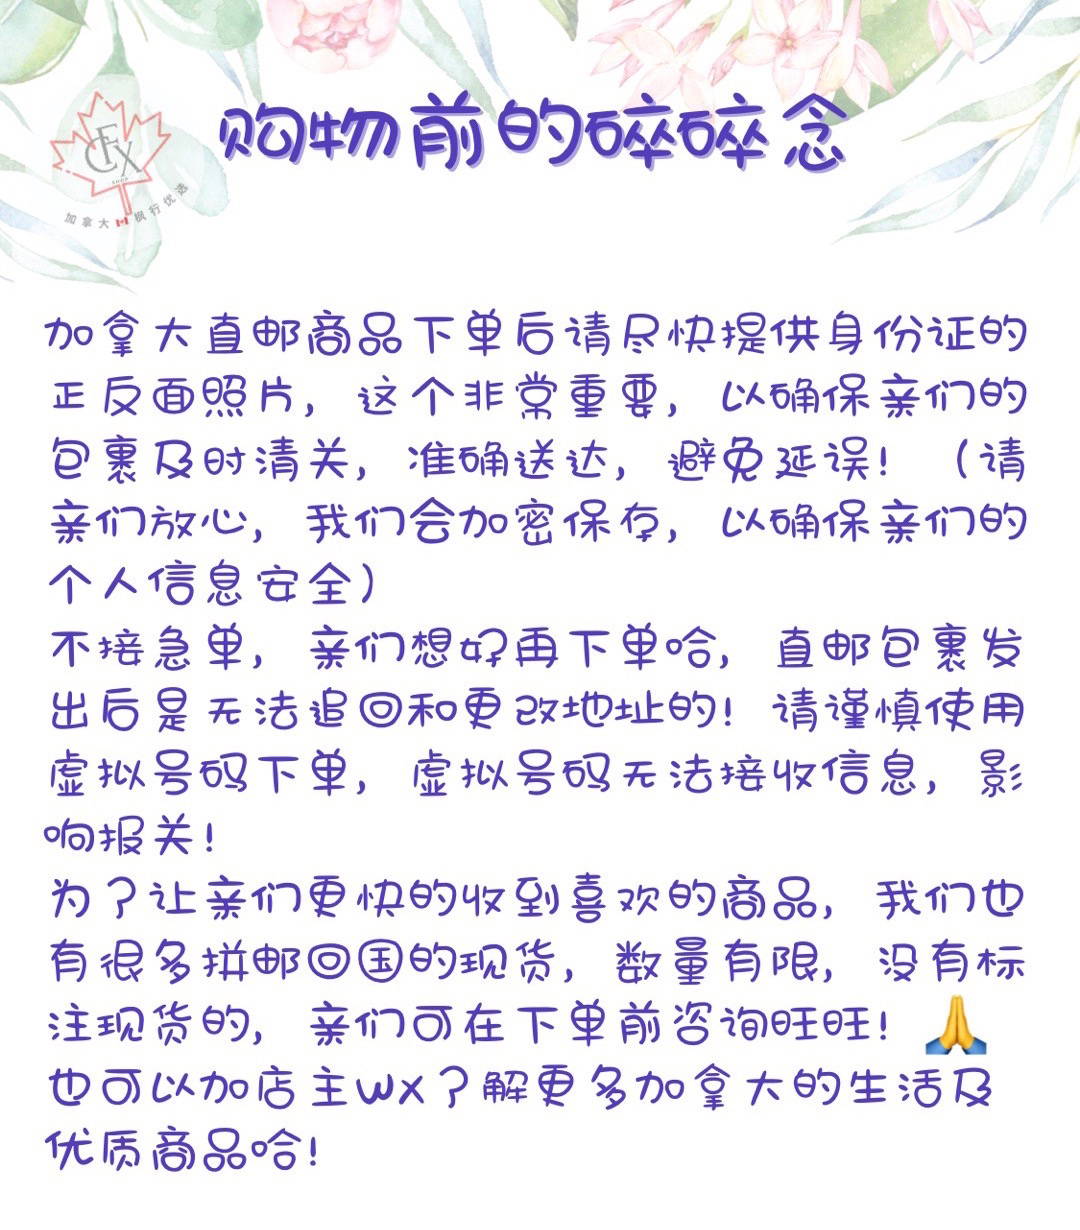 购物前的碎碎念
CFX
SHOP
加拿大🇨🇦枫行优选
加拿大直邮商品下单后请尽快提供身份证的
正反面照片，这个非常重要，以确保亲们的
包裹及时清关，准确送达，避免延误！（请
亲们放心，我们会加密保存，以确保亲们的
个人信息安全）
不接急单，亲们想好再下单哈，直邮包裹发
出后是无法追回和更改地址的！请谨慎使用
虚拟号码下单，虚拟号码无法接收信息，影
响报关！
为了让亲们更快的收到喜欢的商品，我们也
有很多拼邮回国的现货，数量有限，没有标
注现货的，亲们可在下单前咨询旺旺！🙏
也可以加店主wx了解更多加拿大的生活及
优质商品哈！